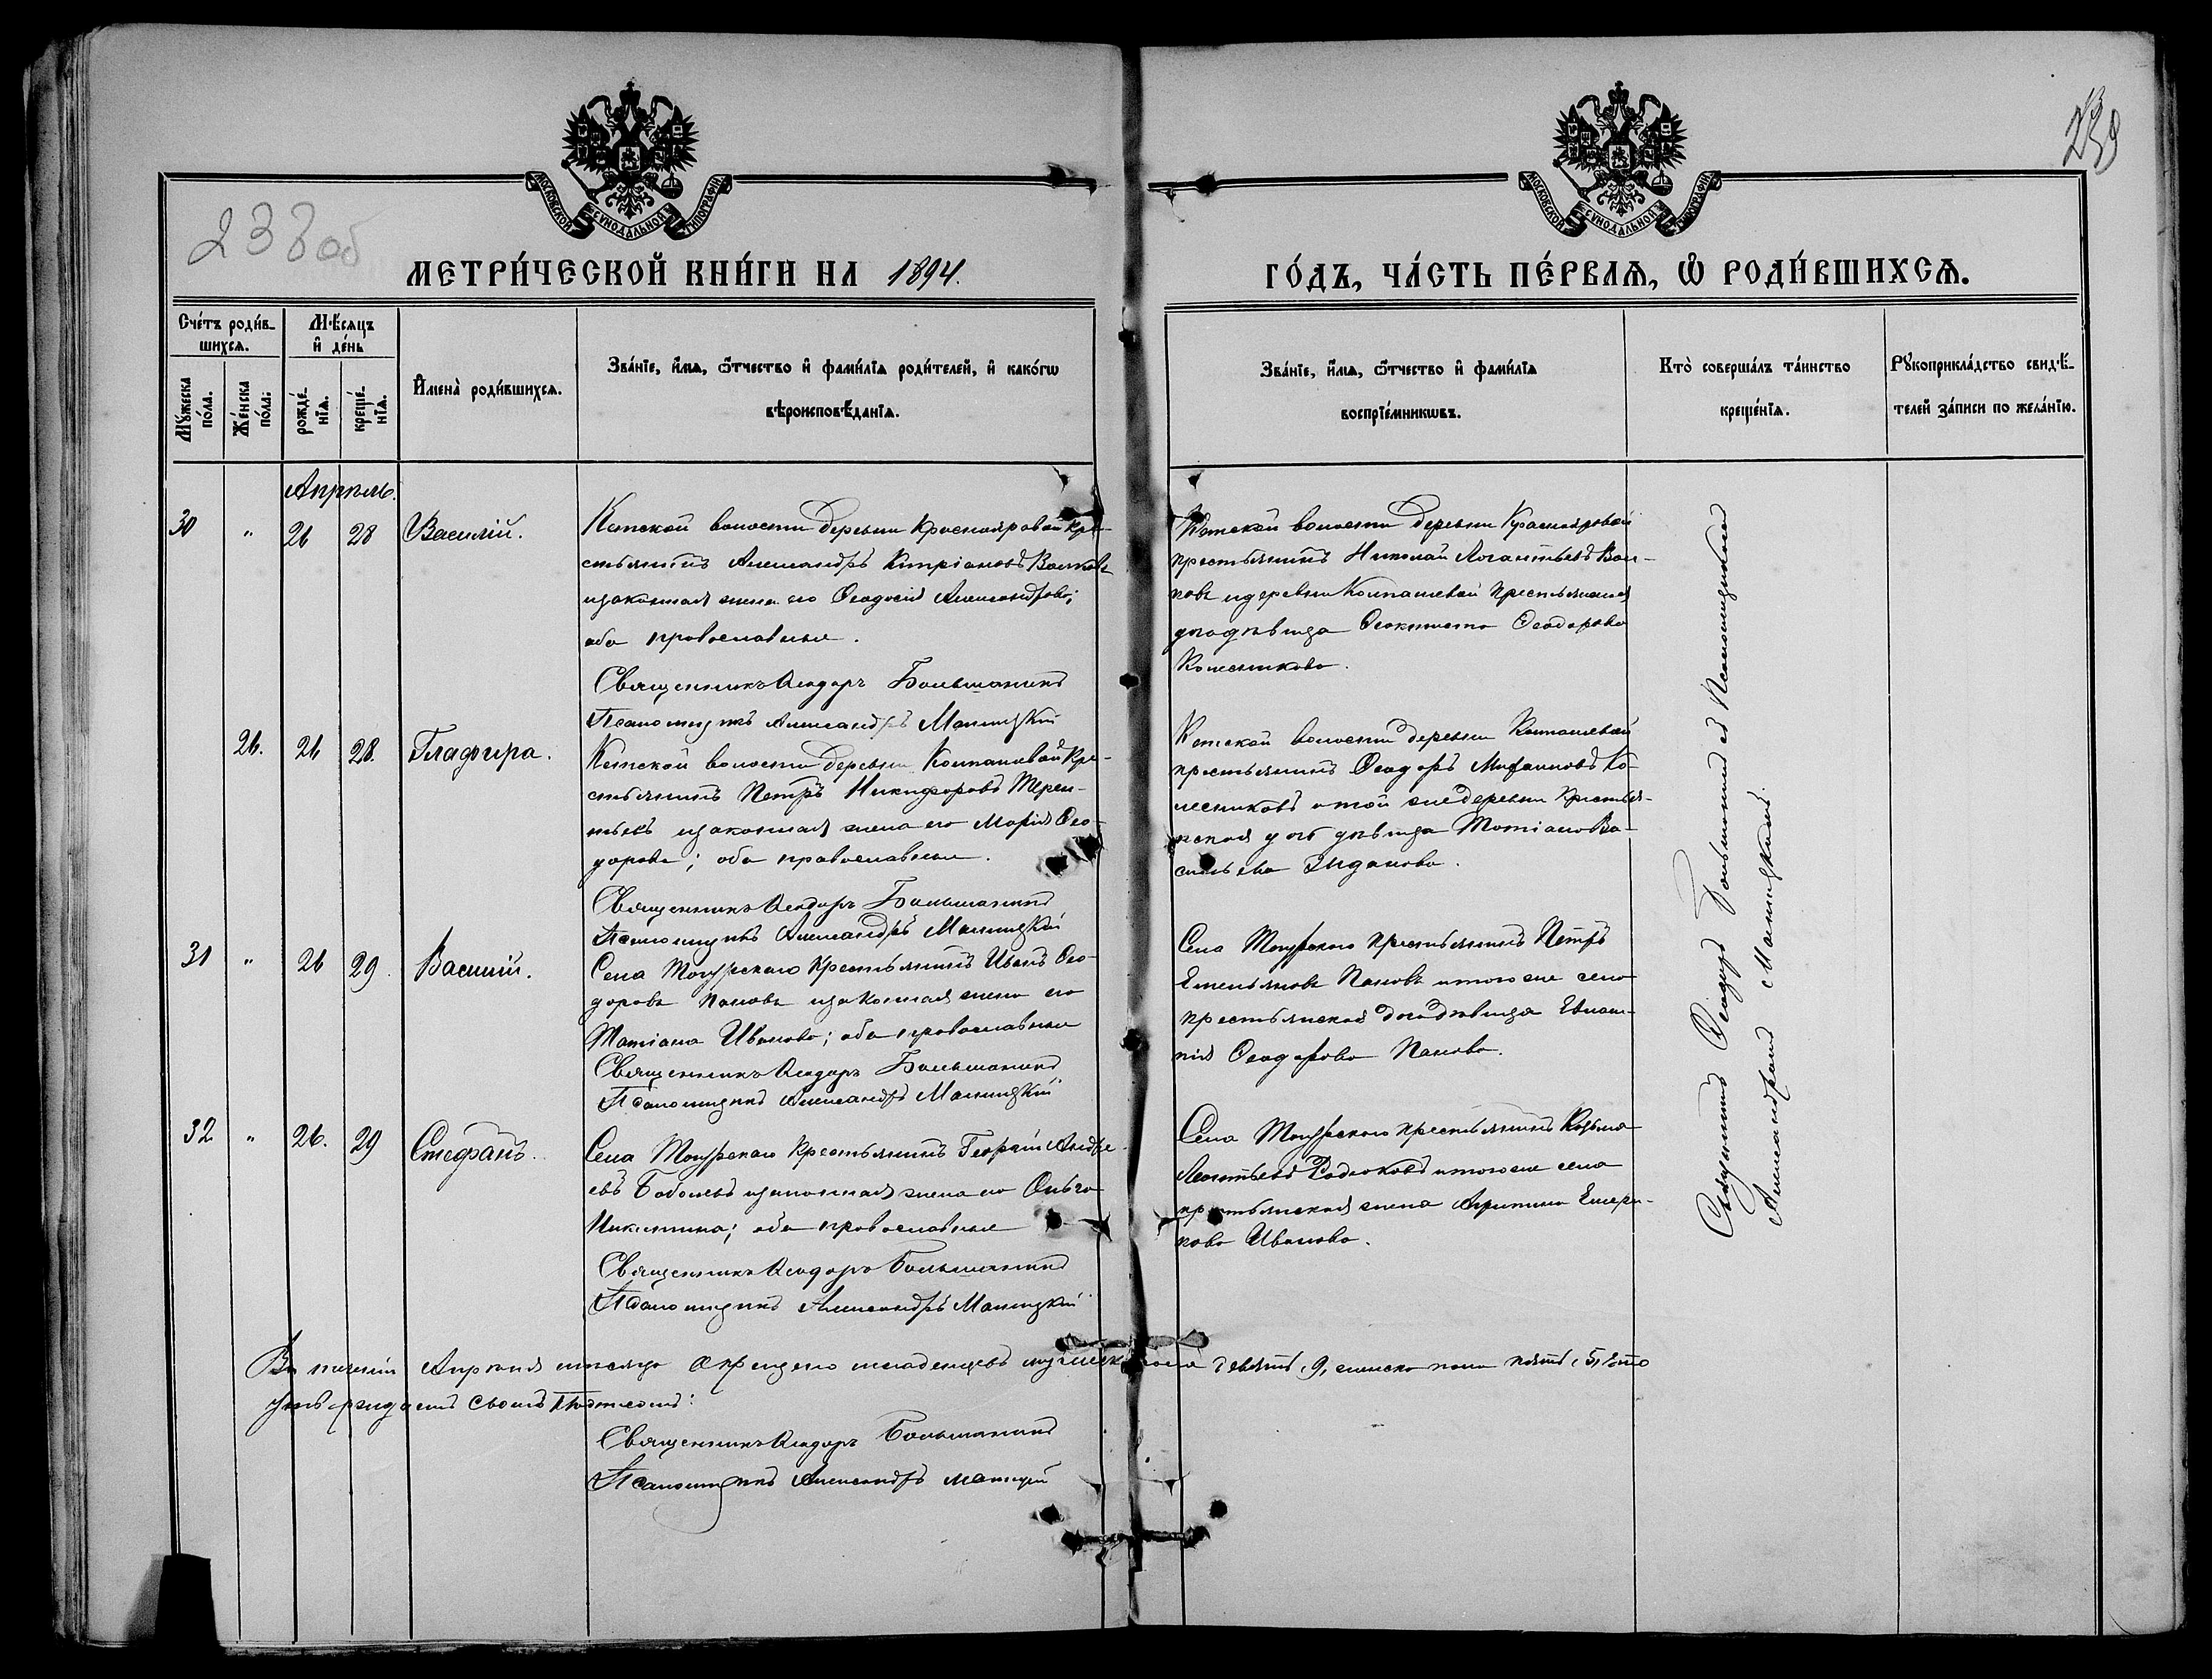 239
238 об
МОСКОВСКОЙ СУНОДАЛЬНОЙ ТИПОГРАФІИ
МОСКОВСКОЙ СУНОДАЛЬНОЙ ТИПОГРАФІИ
МЕТРИ́ЧЕСКОЙ КНИ́ГИ НА 1894.
ГО́ДЪ, ЧА́СТЬ ПЕ́РВАѦ, Ѡ҆ РОДИ́ВШИХСѦ.
Сче́тъ роди́в-
шихсѧ.
Мꙋ́жеска по́ла.
Же́нска по́ла.
Мѣ́сѧцъ
и҆ де́нь
рожде́-
нїѧ.
креще́-
нїѧ.
И҆мена̀ роди́вшихсѧ.
Зва́нїе, и҆́мѧ, ѻ҆́тчество и҆ фами́лїѧ роди́телей, и҆ како́гѡ
вѣроисповѣ́данїѧ.
Зва́нїе, и҆́мѧ, ѻ҆́тчество и҆ фами́лїѧ
воспрїе́мникѡвъ.
Кто̀ соверша́лъ та́инство
креще́нїѧ.
Рꙋкоприкла́дство свидѣ́-
телей за́писи по жела́нїю.
Апрѣль.
30 " 26 28 Василій.
Кетской волости деревни Краснояровой кре-
стьянинъ Александръ Кипріановъ Волковъ
и законная жена его Ѳеодосія Александрова;
оба православные.
Священникъ Ѳеодоръ Большанинъ
Псаломщикъ Александръ Маницкій
Кетской волости деревни Краснояровой
крестьянинъ Николай Леонтьевъ Вол-
ковъ и деревни Колпашевой крестьянская
дочь дѣвица Ѳеоктиста Ѳеодорова
Колесникова.
26. 26 28. Глафира.
Кетской волости деревни Колпашевой кре-
стьянинъ Петръ Никифоровъ Терен-
тьевъ и законная жена его Марія Ѳео-
дорова; оба православные.
Священникъ Ѳеодоръ Большанинъ
Псаломщикъ Александръ Маницкій
Кетской волости деревни Колпашевой
крестьянинъ Ѳеодоръ Ко-
лесниковъ и той же деревни крестья-
нская дочь дѣвица Татіана Ва-
сильева
31 " 26 29. Василій.
Села Тогурскаго крестьянинъ Иванъ Ѳео-
доровъ Пановъ и законная жена его
Татіана Иванова; оба православные
Священникъ Ѳеодоръ Большанинъ
Псаломщикъ Александръ Маницкій
Села Тогурскаго крестьянинъ Петръ
Емельяновъ Пановъ и того же села
крестьянская дочь дѣвица Евлам-
пія Ѳеодорова Панова.
32 " 26. 29 Стефанъ.
Села Тогурскаго крестьянинъ Георгій Андре-
евъ и законная жена его Ольга
Никитина; оба православные
Священникъ Ѳеодоръ Большанинъ
Псаломщикъ Александръ Маницкій
Села Тогурскаго крестьянинъ Козьма
Леонтьевъ Родюковъ и того же села
крестьянская жена
Иванова.
Священникъ Ѳеодоръ Большанинъ съ Псаломщикомъ
Александромъ Маницкимъ.
Въ теченіи Апрѣля мѣсяца окрещено младенцевъ мужеска пола девять, 9, женска пола пять, 5,
Священникъ Ѳеодоръ Большанинъ
Псаломщикъ Александръ Маницкій